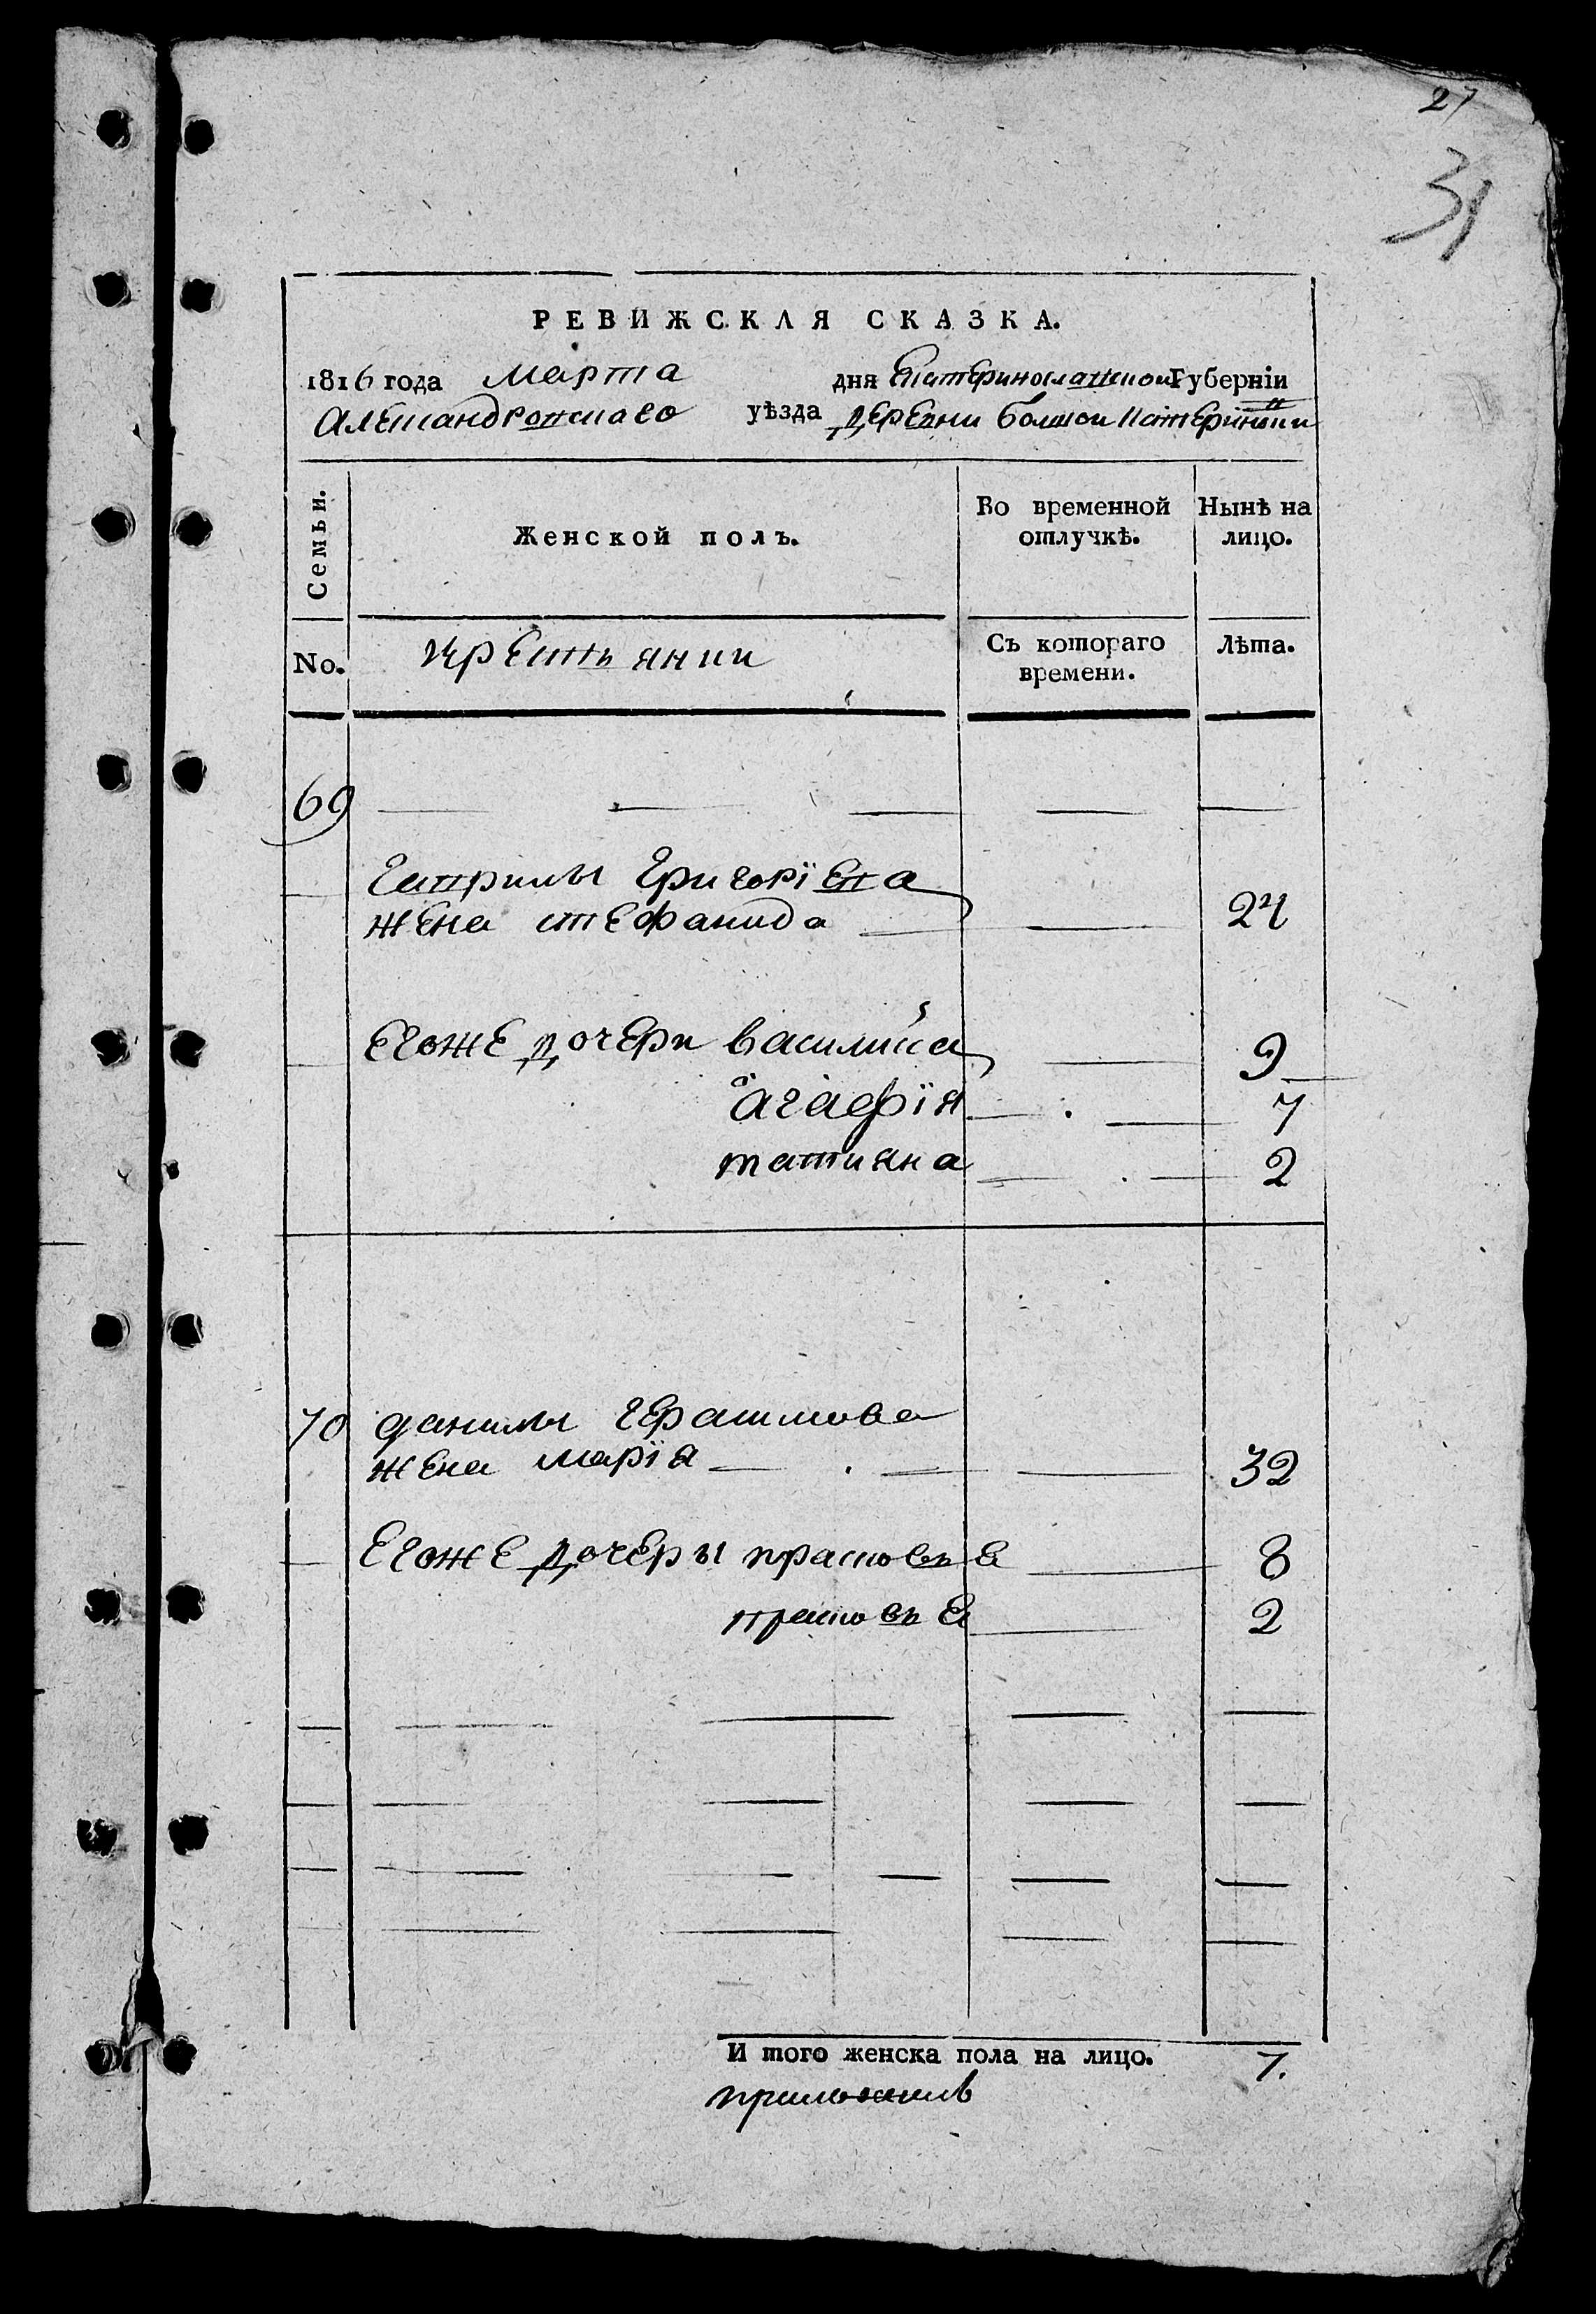 27
31
РЕВИЖСКАЯ СКАЗКА.
1816 года марта дня Екатеринославской Губерніи
Александровскаго уѣзда деревни болшой катериновки
Семьи. Женской полъ. Во временной отлучкѣ. Нынѣ на лицо.
No. крестьянки Съ котораго времени. Лѣта.
69
гаврилы григоріева
жена стефанида 24
егоже дочери василиса 9
агафія 7
татияна 2
70 данилы герасимова
жена марія 32
Егоже дочеры прасковья 8
прасковья 2
И того женска пола на лицо. 7.